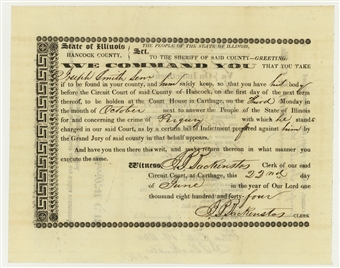 State of Illinois
HANCOCK COUNTY,
Sct.
THE PEOPLE OF THE STATE OF ILLINOIS,
TO THE SHERIFF OF SAID COUNTY—GREETING:
WE COMMAND YOU THAT YOU TAKE
Joseph Smith
if to be found in your county, and him safely keep, so that you have his body
before the Circuit Court of said County of Hancock, on the first day of the next term
thereof, to be holden at the Court House in Carthage, on the Third Monday in
the month of October next, to answer the People of the State of Illinois
for and concerning the crime of Perjury with which he stands
charged in our said Court, as by a certain bill of Indictment preferred against him by
the Grand Jury of said county in that behalf appears.
And have you then there this writ, and make return thereon in what manner you
execute the same.
Witness, Clerk of our said
Circuit Court, at Carthage, this 22nd day
of June in the year of Our Lord one
thousand eight hundred and forty-four
CLERK